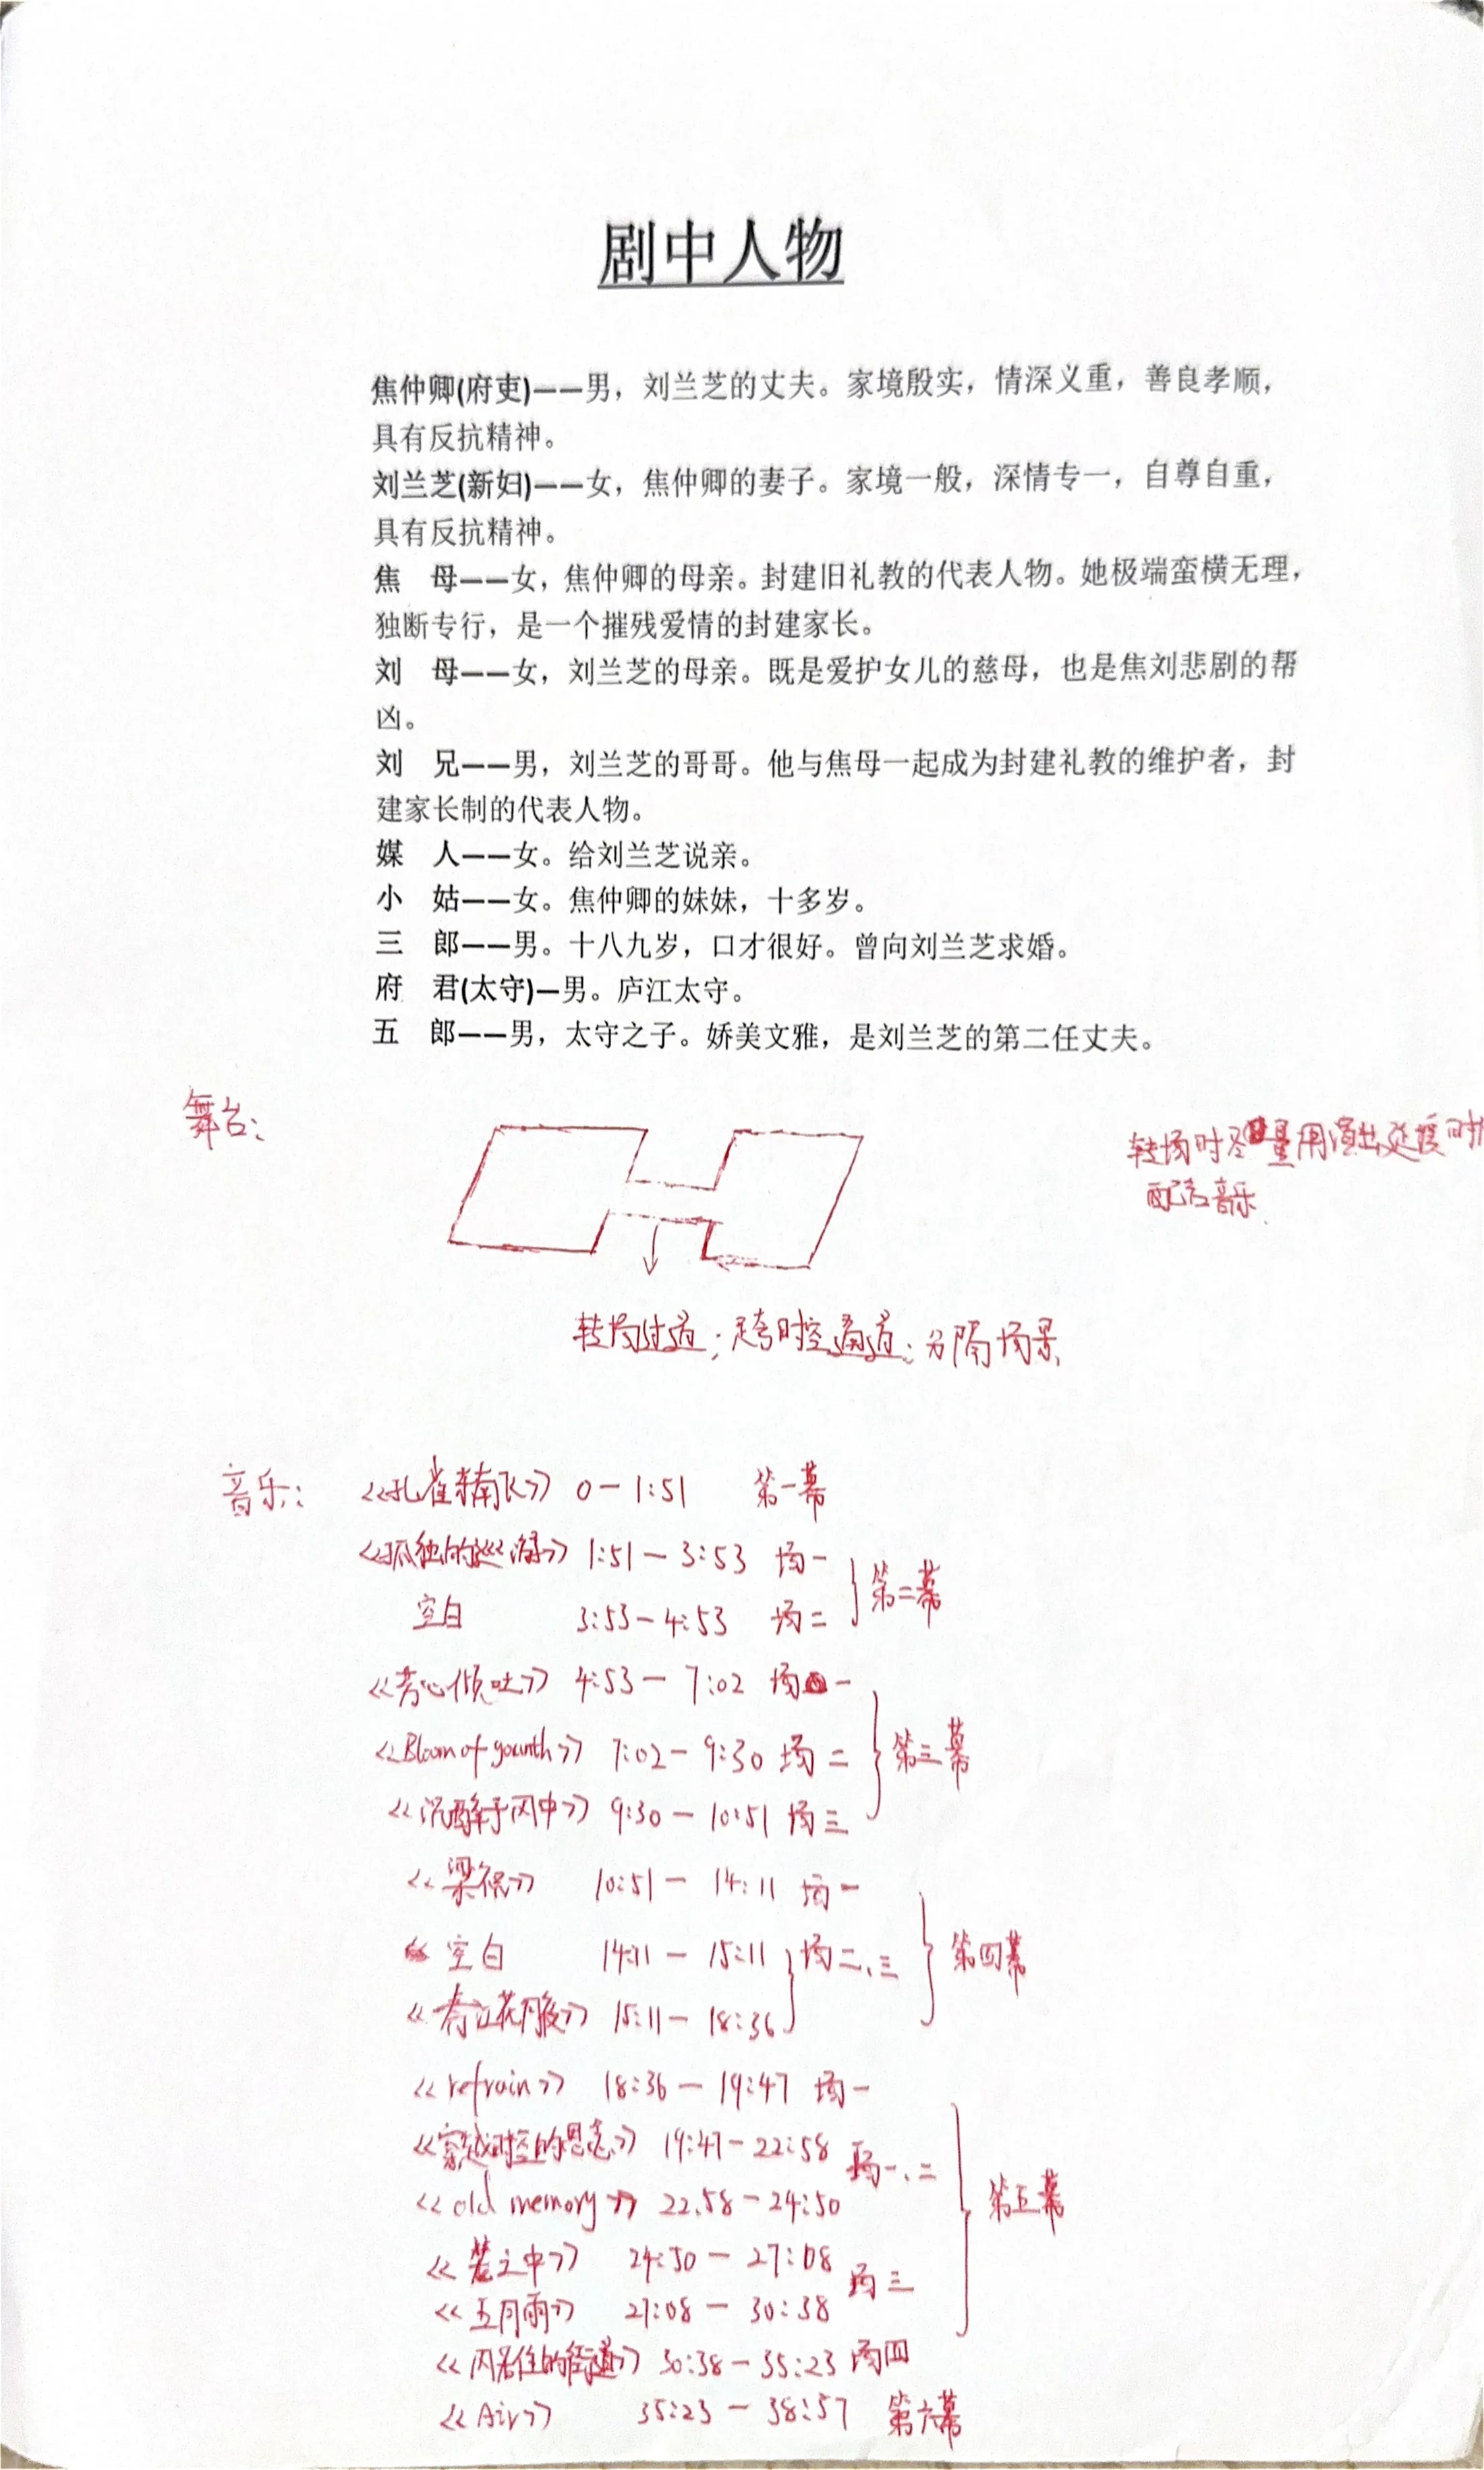 剧中人物
焦仲卿(府吏)——男，刘兰芝的丈夫。家境殷实，情深义重，善良孝顺，
具有反抗精神。
刘兰芝(新妇)——女，焦仲卿的妻子。家境一般，深情专一，自尊自重，
具有反抗精神。
焦　母——女，焦仲卿的母亲。封建旧礼教的代表人物。她极端蛮横无理，
独断专行，是一个摧残爱情的封建家长。
刘　母——女，刘兰芝的母亲。既是爱护女儿的慈母，也是焦刘悲剧的帮
凶。
刘　兄——男，刘兰芝的哥哥。他与焦母一起成为封建礼教的维护者，封
建家长制的代表人物。
媒　人——女。给刘兰芝说亲。
小　姑——女。焦仲卿的妹妹，十多岁。
三　郎——男。十八九岁，口才很好。曾向刘兰芝求婚。
府　君(太守)—男。庐江太守。
五　郎——男，太守之子。娇美文雅，是刘兰芝的第二任丈夫。
舞台：
转场时尽量用演出延续时
配之音乐
转场过道；跨时空通道；分隔场景
音乐：《孔雀东南飞》 0－1:51 第一幕
《孤独的巡游》 1:51－3:53 场一
空白 3:53－4:53 场二
第二幕
《芳心倾吐》 4:53－7:02 场一
《Bloom of youth》 7:02－9:30 场二
第三幕
《沉醉于风中》 9:30－10:51 场三
《梁祝》 10:51－14:11 场一
空白 14:11－15:11 场二、三
第四幕
《春江花月夜》 15:11－18:36
《refrain》 18:36－19:47 场一
《穿越时空的思念》 19:47－22:58 场一、二
《old memory》 22:58－24:50
第五幕
之中》 24:50－27:08 场三
《五月雨》 27:08－30:38
《风居住的街道》 30:38－35:23 场四
《Air》 35:23－38:57 第六幕